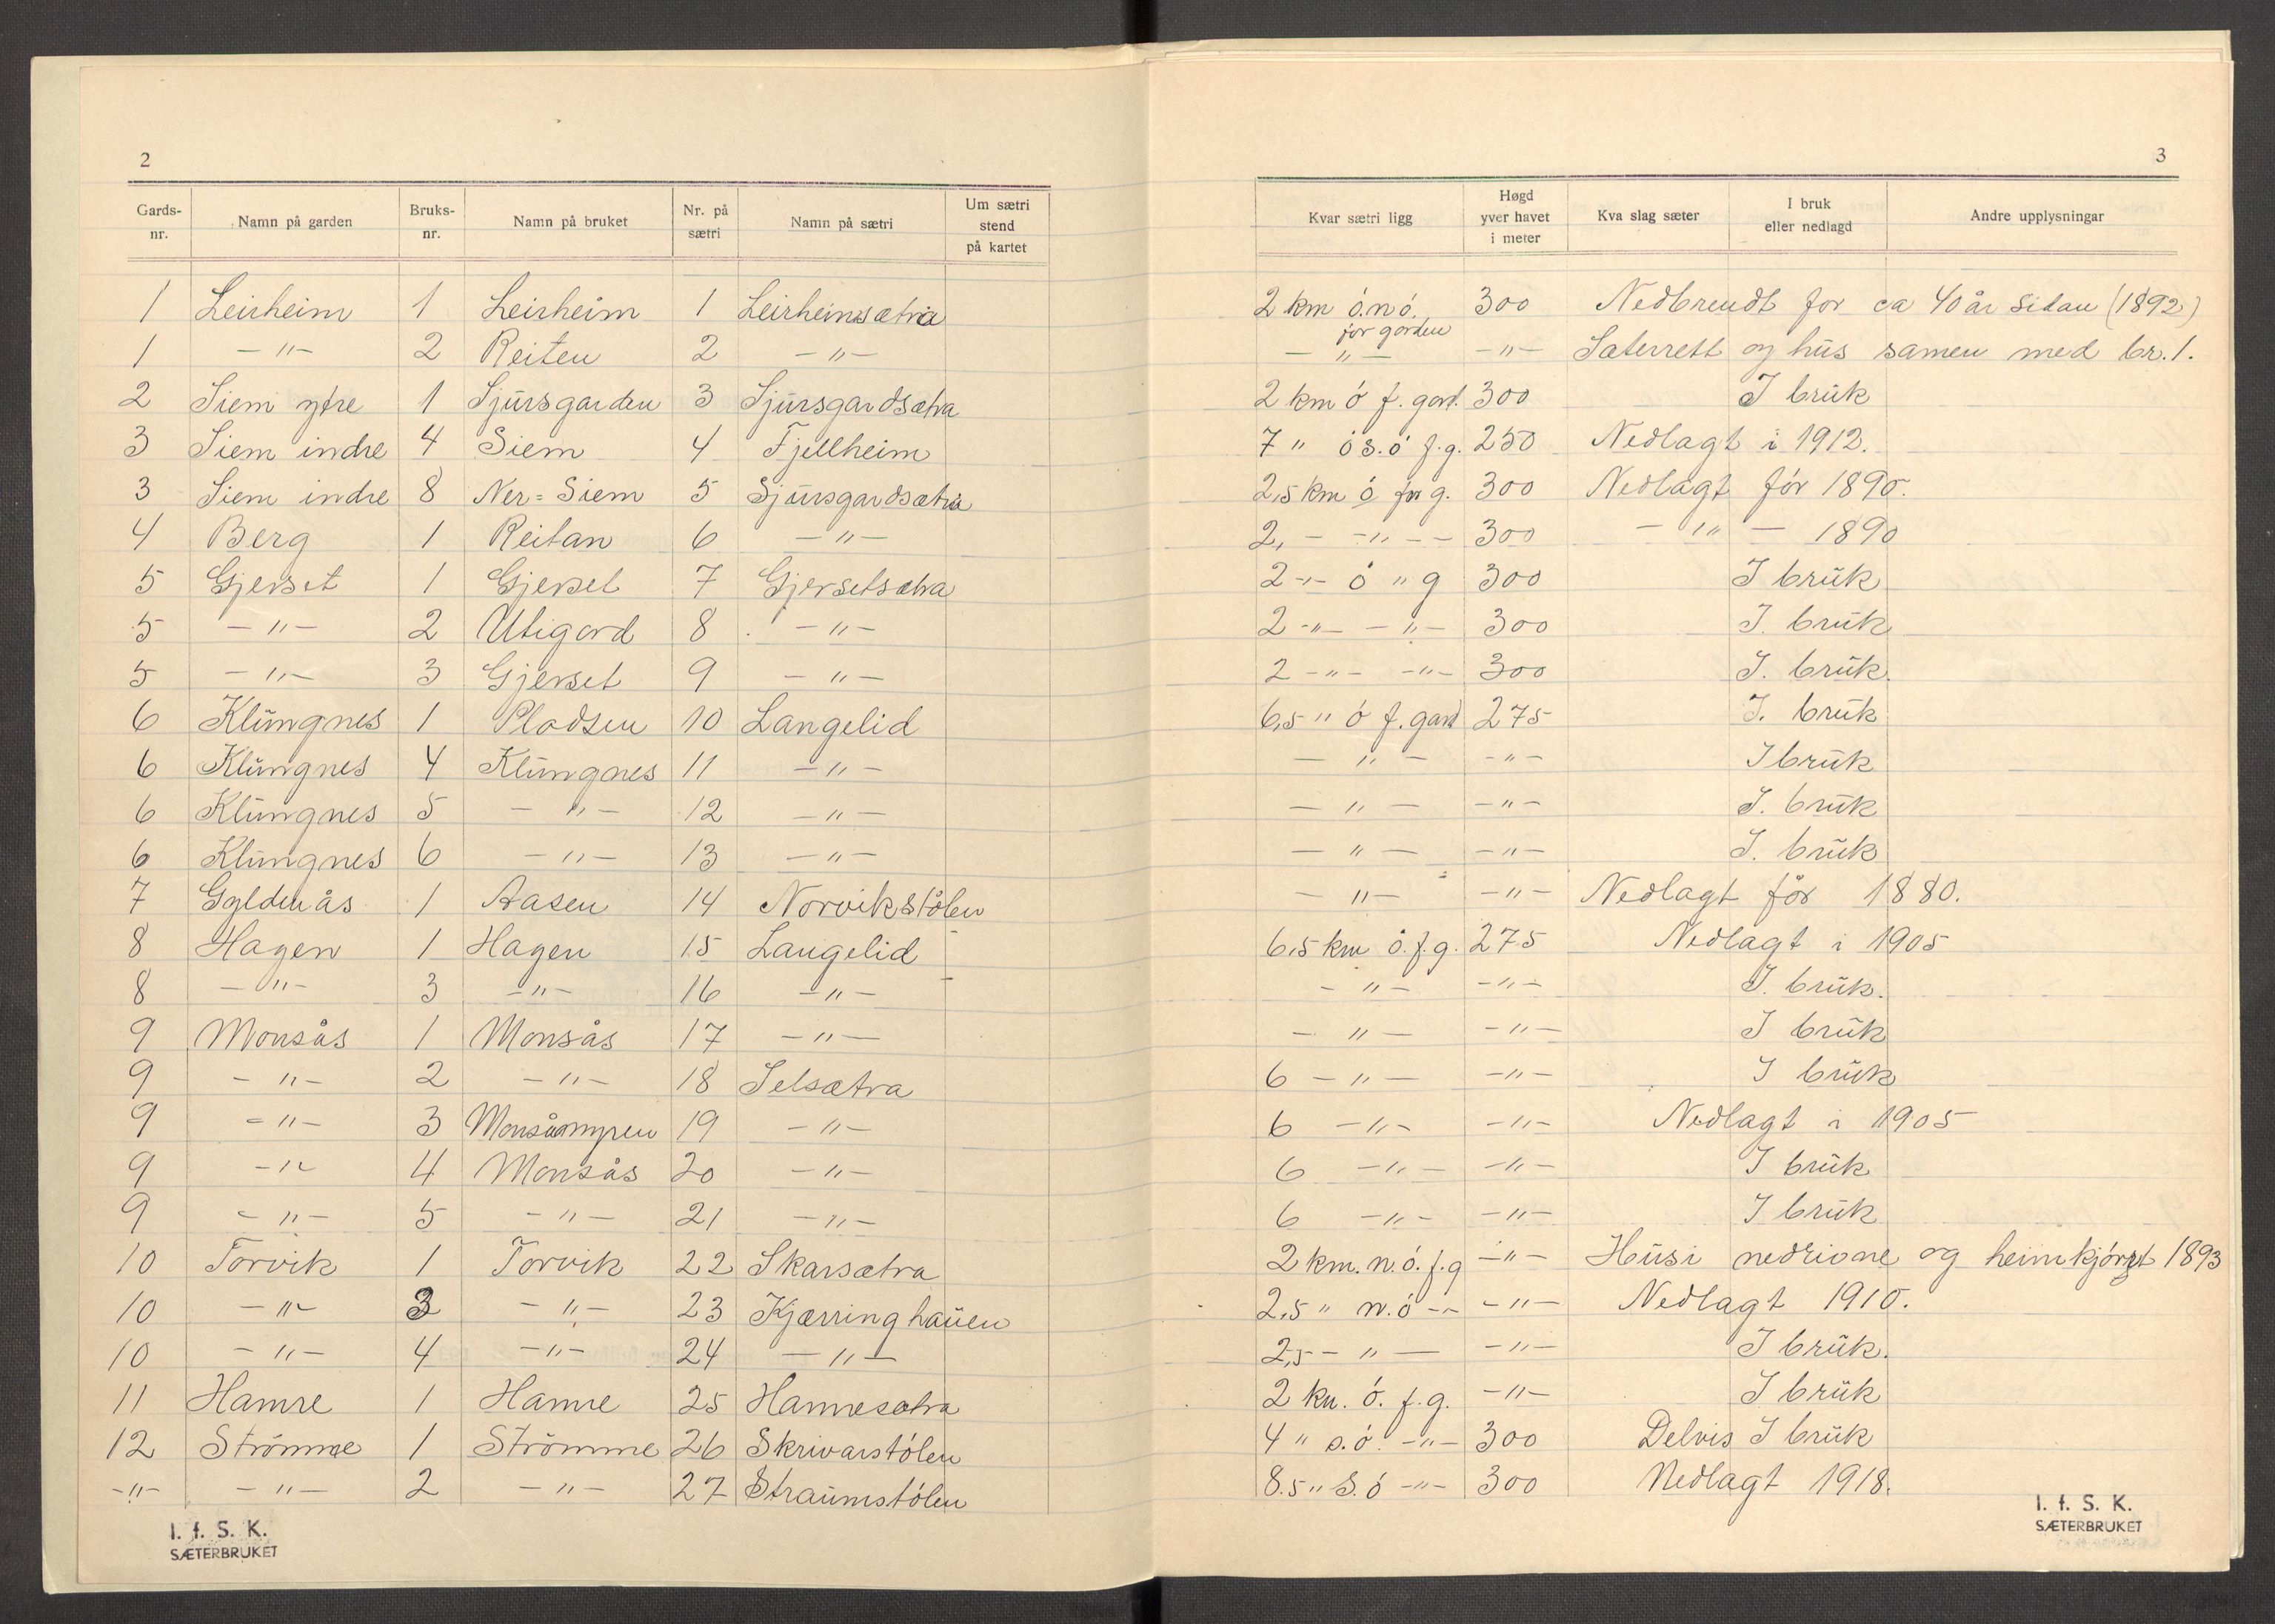 2
Gards-nr. Namn på garden Bruks-nr. Namn på bruket Nr. på sætri Namn på sætri Um sætri stend på kartet
1 Leirheim 1 Leirheim 1 Leirheimsætra
1 -"- 2 Reiten 2 -"-
2 Siem ytre 1 Sjursgarden 3 Sjursgardsætra
3 Siem indre 4 Siem 4 Fjellheim
3 Siem indre 8 Ner=Siem 5 Sjursgardsætra
4 Berg 1 Reitan 6 -"-
5 Gjerset 1 Gjerset 7 Gjersetsætra
5 -"- 2 Utigard 8 -"-
5 -"- 3 Gjerset 9 -"-
6 Klungnes 1 Pladsen 10 Langelid
6 Klungnes 4 Klungnes 11 -"-
6 Klungnes 5 -"- 12 -"-
6 Klungnes 6 -"- 13 -"-
7 Gyldenås 1 Aasen 14 Norvikstölen
8 Hagen 1 Hagen 15 Langelid
8 -"- 3 -"- 16 -"-
9 Monsås 1 Monsås 17 -"-
9 -"- 2 -"- 18 Selsætra
9 -"- 3 Monsåsmyren 19 -"-
9 -"- 4 Monsås 20 -"-
9 -"- 5 -"- 21 -"-
10 Torvik 1 Torvik 22 Skarsætra
10 -"- 3 -"- 23 Kjærringhauen
10 -"- 4 -"- 24 -"-
11 Hamre 1 Hamre 25 Hamresætra
12 Strömme 1 Strömme 26 Skrivarstólen
-"- -"- 2 -"- 27 Straumstólen
I. f. S. K.
SÆTERBRUKET
3
Kvar sætri ligg Høgd yver havet i meter Kva slag sæter I bruk eller nedlagd Andre upplysningar
2 km ó.n.ó. for garden 300 Nedbrendt for ca 40 år sidan (1892)
-"- -"- Sæterrett og hus samen med br. 1.
2 km ó f. gard. 300 I bruk
7 " ó s.ó f.g. 250 Nedlagt i 1912.
2,5 km ó for g. 300 Nedlagt fór 1890.
2, - -"- - 300 -"- 1890
2 -"- ó " g 300 I bruk
2 -"- -"- 300 I. bruk
2 -"- -"- 300 I. bruk.
6,5 " ó f. gard 275 I. bruk
-"- -"- I bruk
-"- -"- I. bruk
-"- -"- I. bruk
-"- -"- Nedlagt før 1880.
6,5 km ó. f. g. 275 Nedlagt i 1905
-"- -"- I. bruk.
-"- -"- I bruk
6 -"- -"- I bruk
6 -"- -"- Nedlagt i 1905
6 -"- -"- I bruk
6 -"- -"- I bruk
2 km. n.ó. f.g -"- Husi nedrivne og heimkjórt 1893
2,5 " n.ó -"- -"- Nedlagt 1910.
2,5 - " - -"- I bruk.
2 km. ó. f. g. -"- I bruk
4 " s.ó. -"- 300 Delvis I bruk
8.5 " S.ó -"- 300 Nedlagt 1918.
I. f. S. K.
SÆTERBRUKET